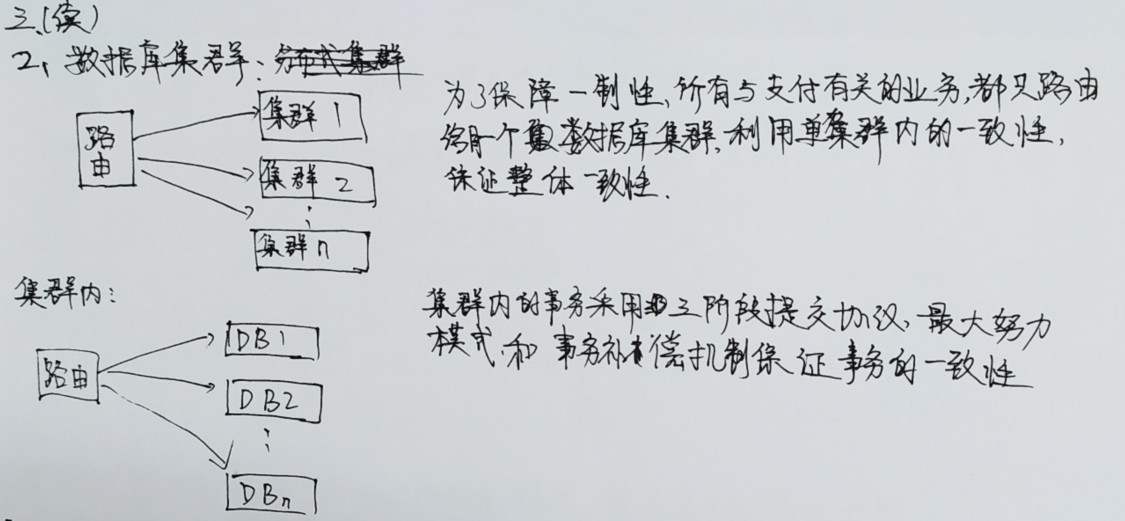 三、(续)
2、数据库集群：分布式集群
路由
集群1
集群2
集群n
为了保障一制性、所有与支付有关的业务,都只路由
给同一个数据库集群,利用单集群内的一致性,
保证整体一致性.
集群内:
路由
DB1
DB2
DBn
集群内的事务采用三阶段提交协议、最大努力
模式、和事务补偿机制保证事务的一致性